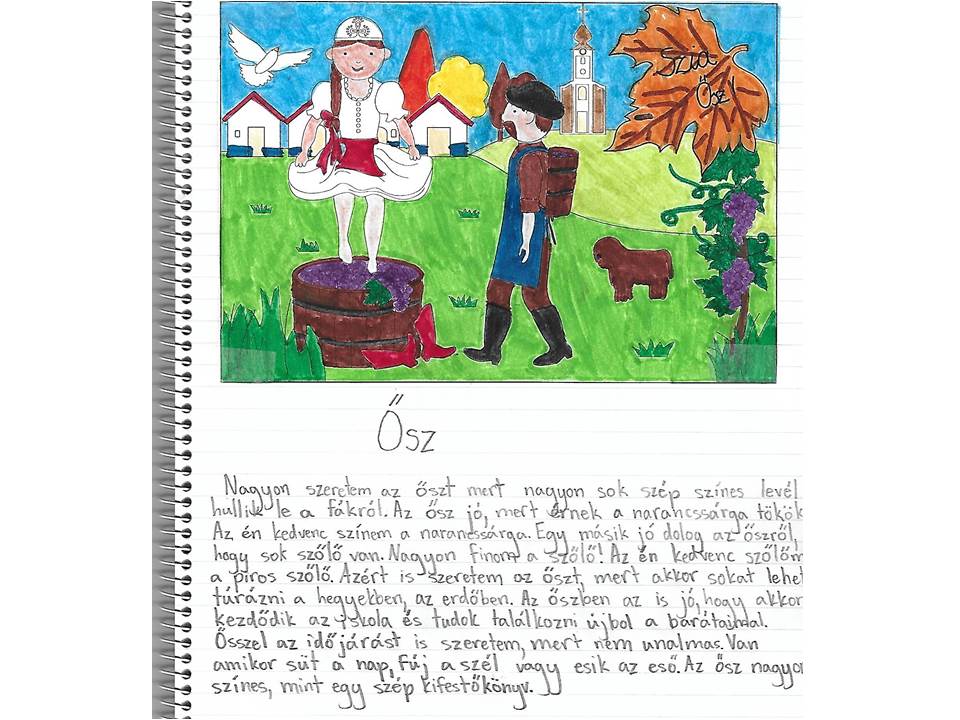 Szia
Ősz!
Ősz
Nagyon szeretem az őszt mert nagyon sok szép színes levél
hullik le a fákról. Az ősz jó, mert érnek a narancssárga tökök
Az én kedvenc színem a narancssárga. Egy másik jó dolog az őszről,
hogy sok szőlő van. Nagyon finom a szőlő! Az én kedvenc szőlőm
a piros szőlő. Azért is szeretem az őszt, mert akkor sokat lehet
túrázni a hegyekben, az erdőben. Az őszben az is jó, hogy akkor
kezdődik az iskola és tudok találkozni újból a barátaimmal.
Ősszel az időjárást is szeretem, mert nem unalmas. Van
amikor süt a nap, fúj a szél vagy esik az eső. Az ősz nagyon
színes, mint egy szép kifestőkönyv.